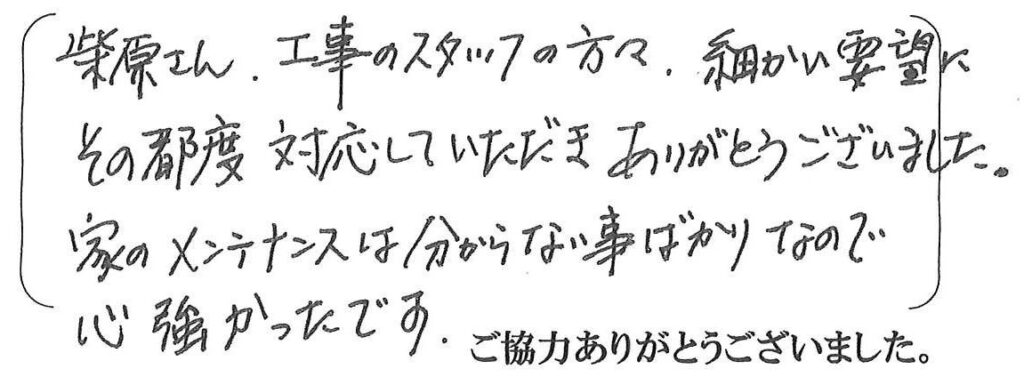 柴原さん、工事のスタッフの方々、細かい要望に
その都度 対応していただき ありがとうございました。
家のメンテナンスは分からない事ばかりなので
心強かったです。
ご協力ありがとうございました。